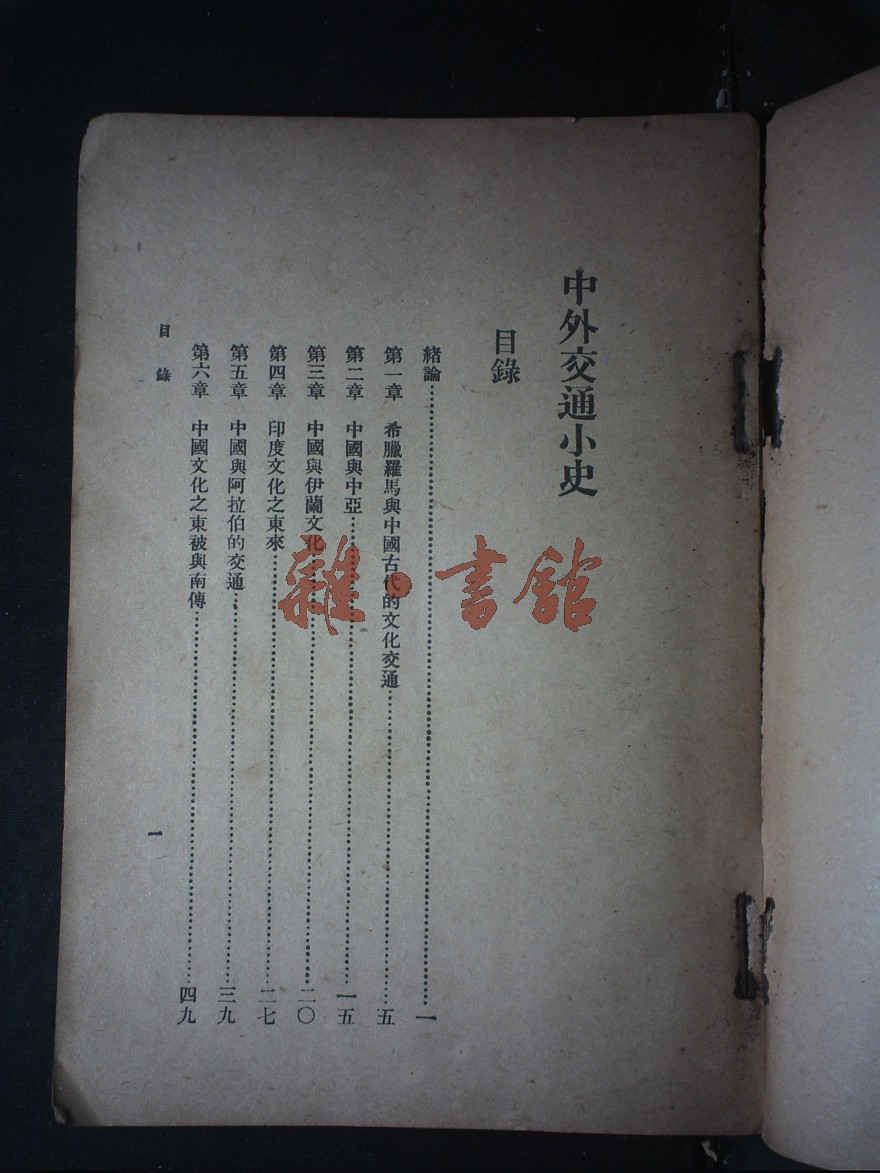 中外交通小史
目錄
緒論……一
第一章 希臘羅馬與中國古代的文化交通……五
第二章 中國與中亞……一五
第三章 中國與伊蘭文化……二〇
第四章 印度文化之東來……二七
第五章 中國與阿拉伯的交通……三九
第六章 中國文化之東被與南傳……四九
目錄
一
雜·書館